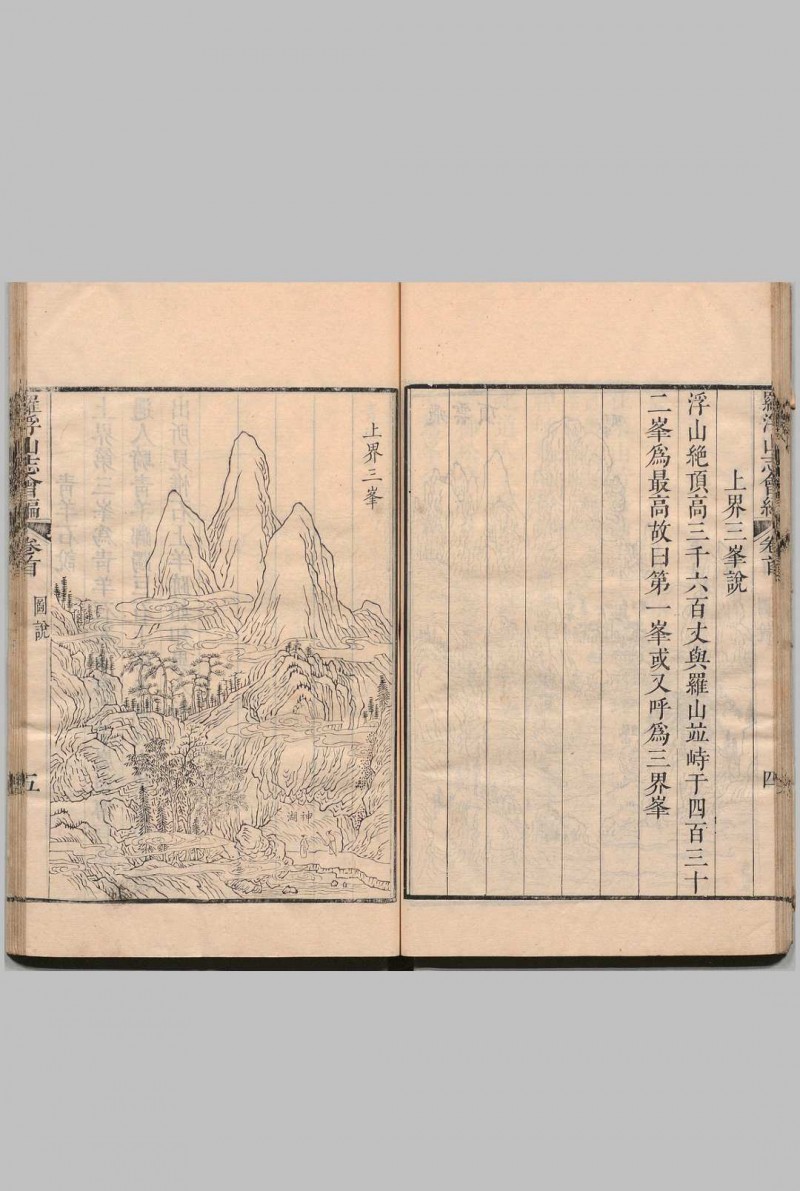 上界三峯說
浮山絶頂高三千六百丈與羅山竝峙于四百三十
二峯爲最高故曰第一峯或又呼爲三界峯
羅浮山志會編
卷首
四
上界三峯
神湖
羅浮山志會編
卷首
圖說
五